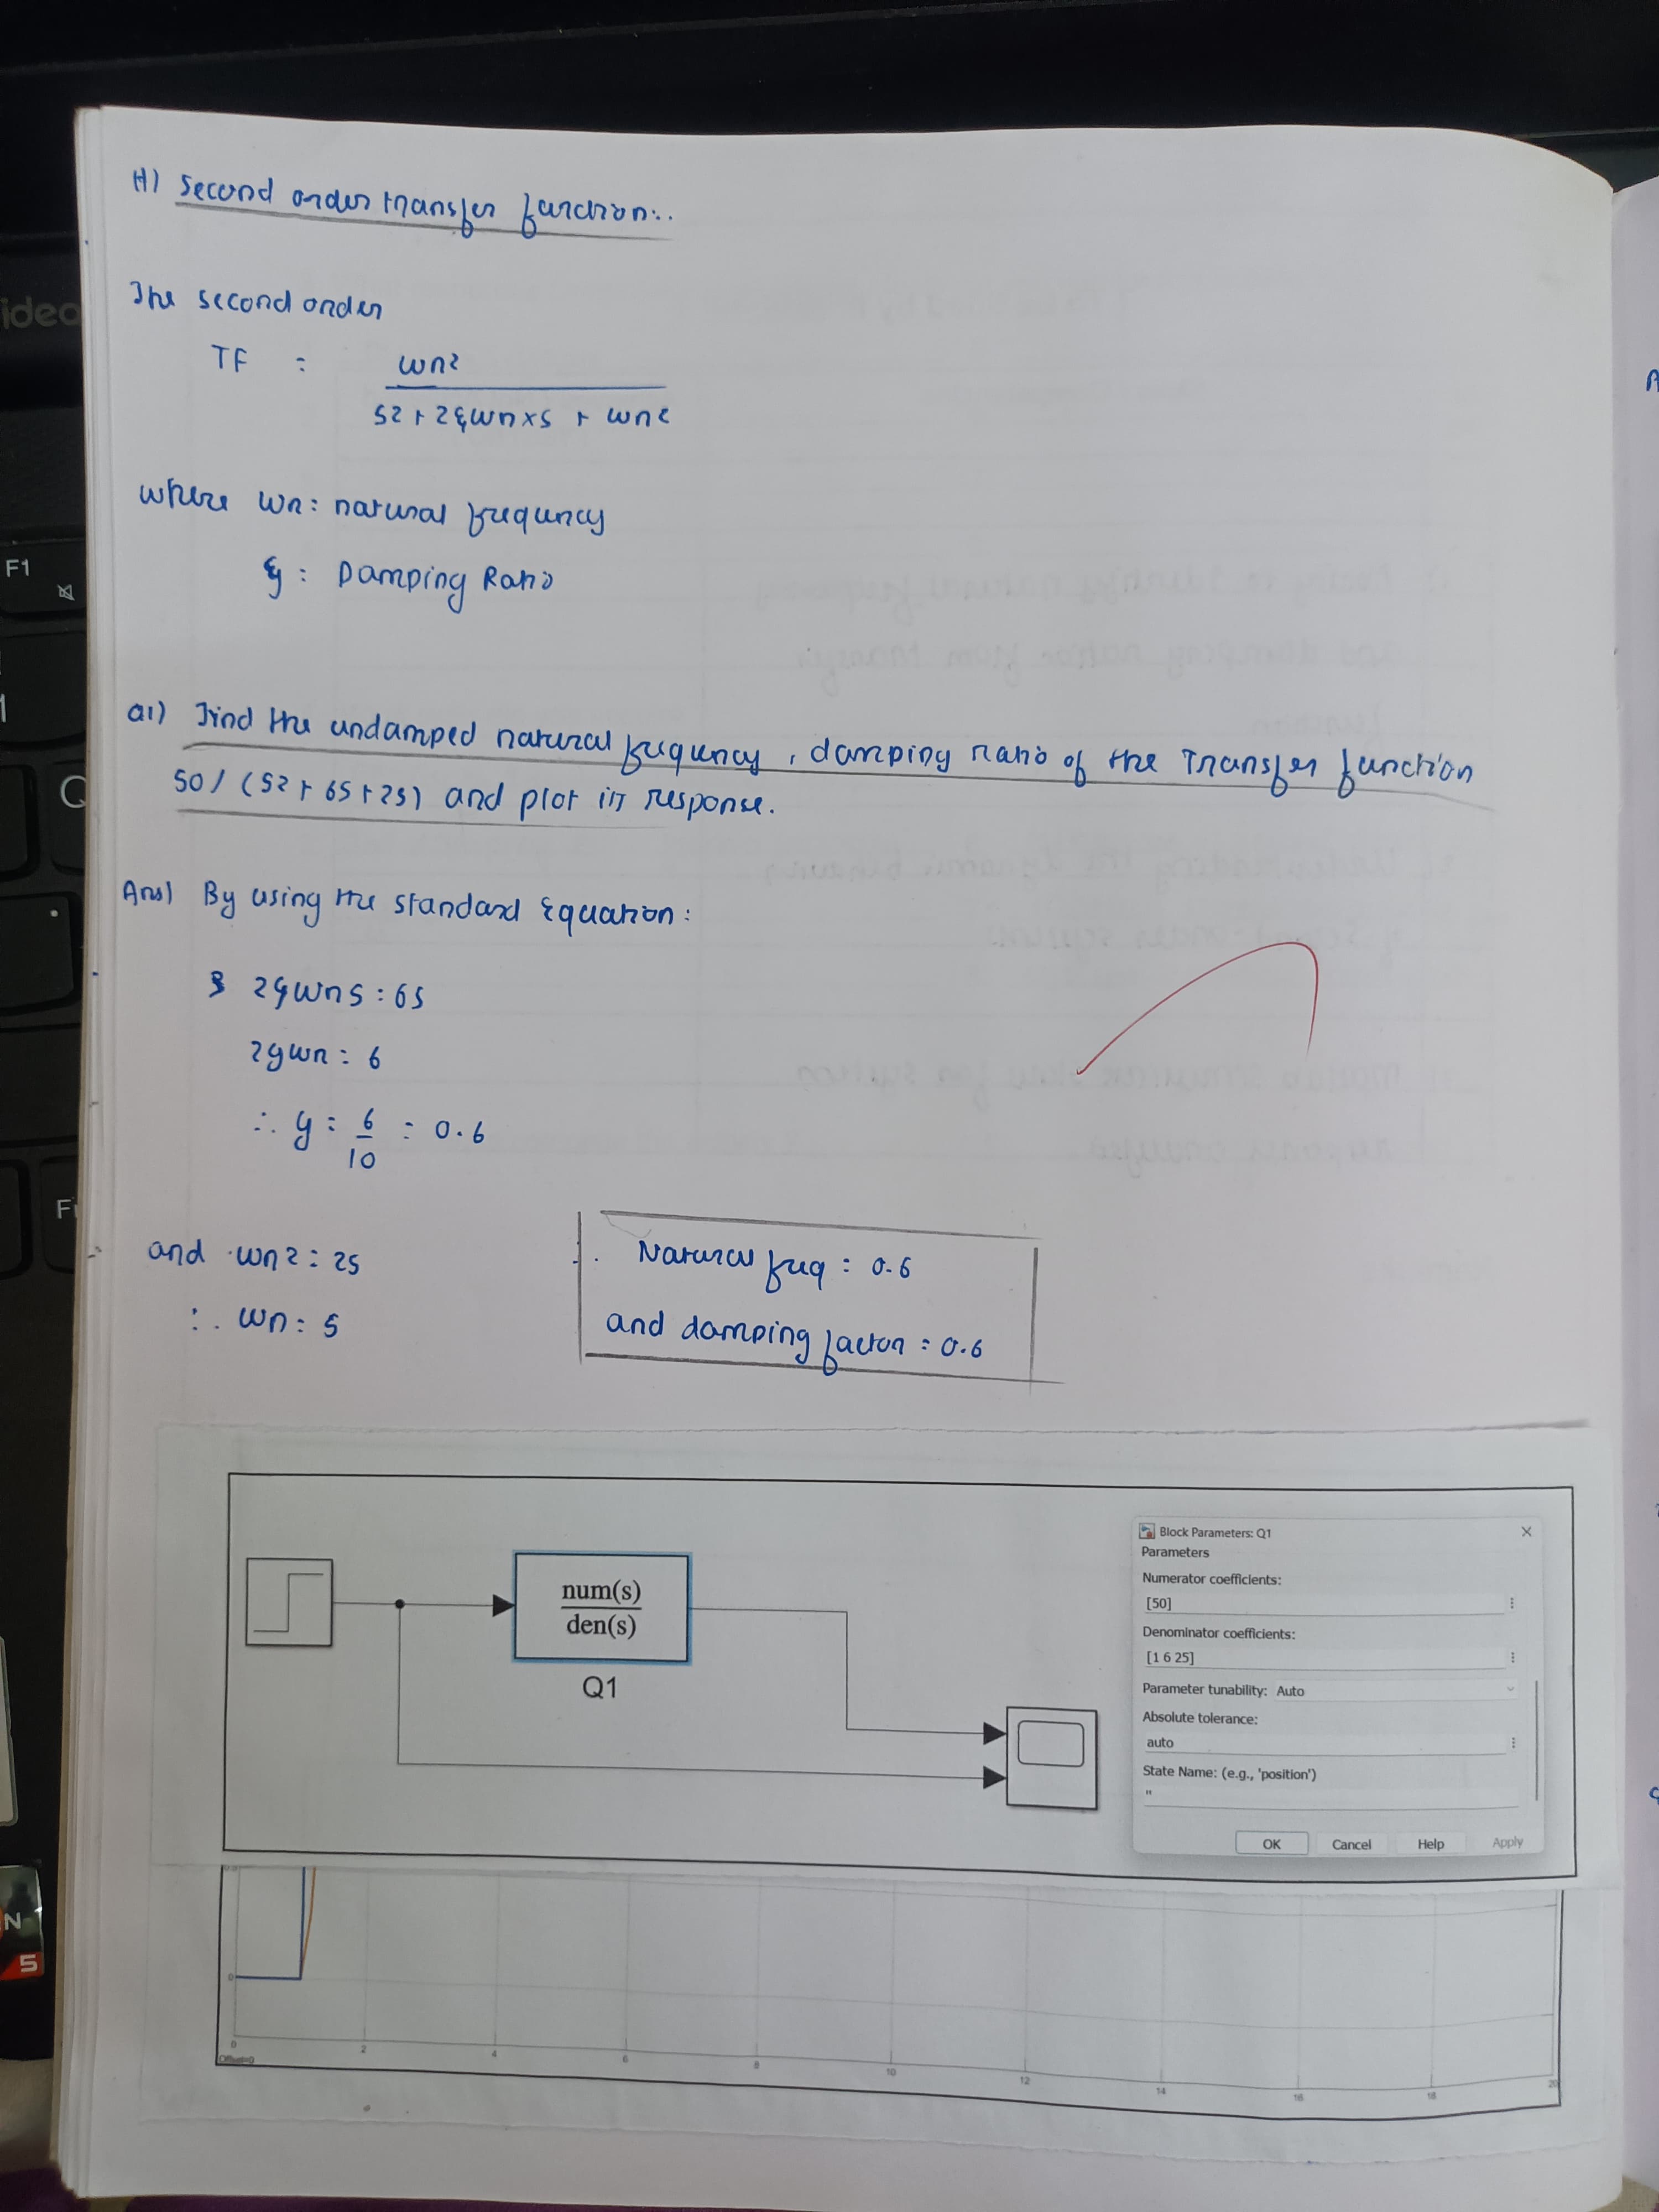 H) Second order transfer function:.
The second order
TF = wn2
s2 + 2ξwnxs + wn2
where wn: natural frequncy
ξ : Damping Ratio
Q1) Find the undamped natural frequency, damping ratio of the Transfer function
50/(s2+6s+25) and plot its response.
Ans) By using the standard Equation:
2ξwns = 6s
2ξwn = 6
∴ ξ = 6/10 = 0.6
and wn2 = 25
∴ wn = 5
∴ Natural freq = 0.6
and damping factor = 0.6
num(s)
den(s)
Q1
Block Parameters: Q1
Parameters
Numerator coefficients:
[50]
Denominator coefficients:
[1 6 25]
Parameter tunability: Auto
Absolute tolerance:
auto
State Name: (e.g., 'position')
''
OK Cancel Help Apply
0
0 2 4 6 8 10 12 14 16 18 20
Offset=0
idea
F1
Q
N
5